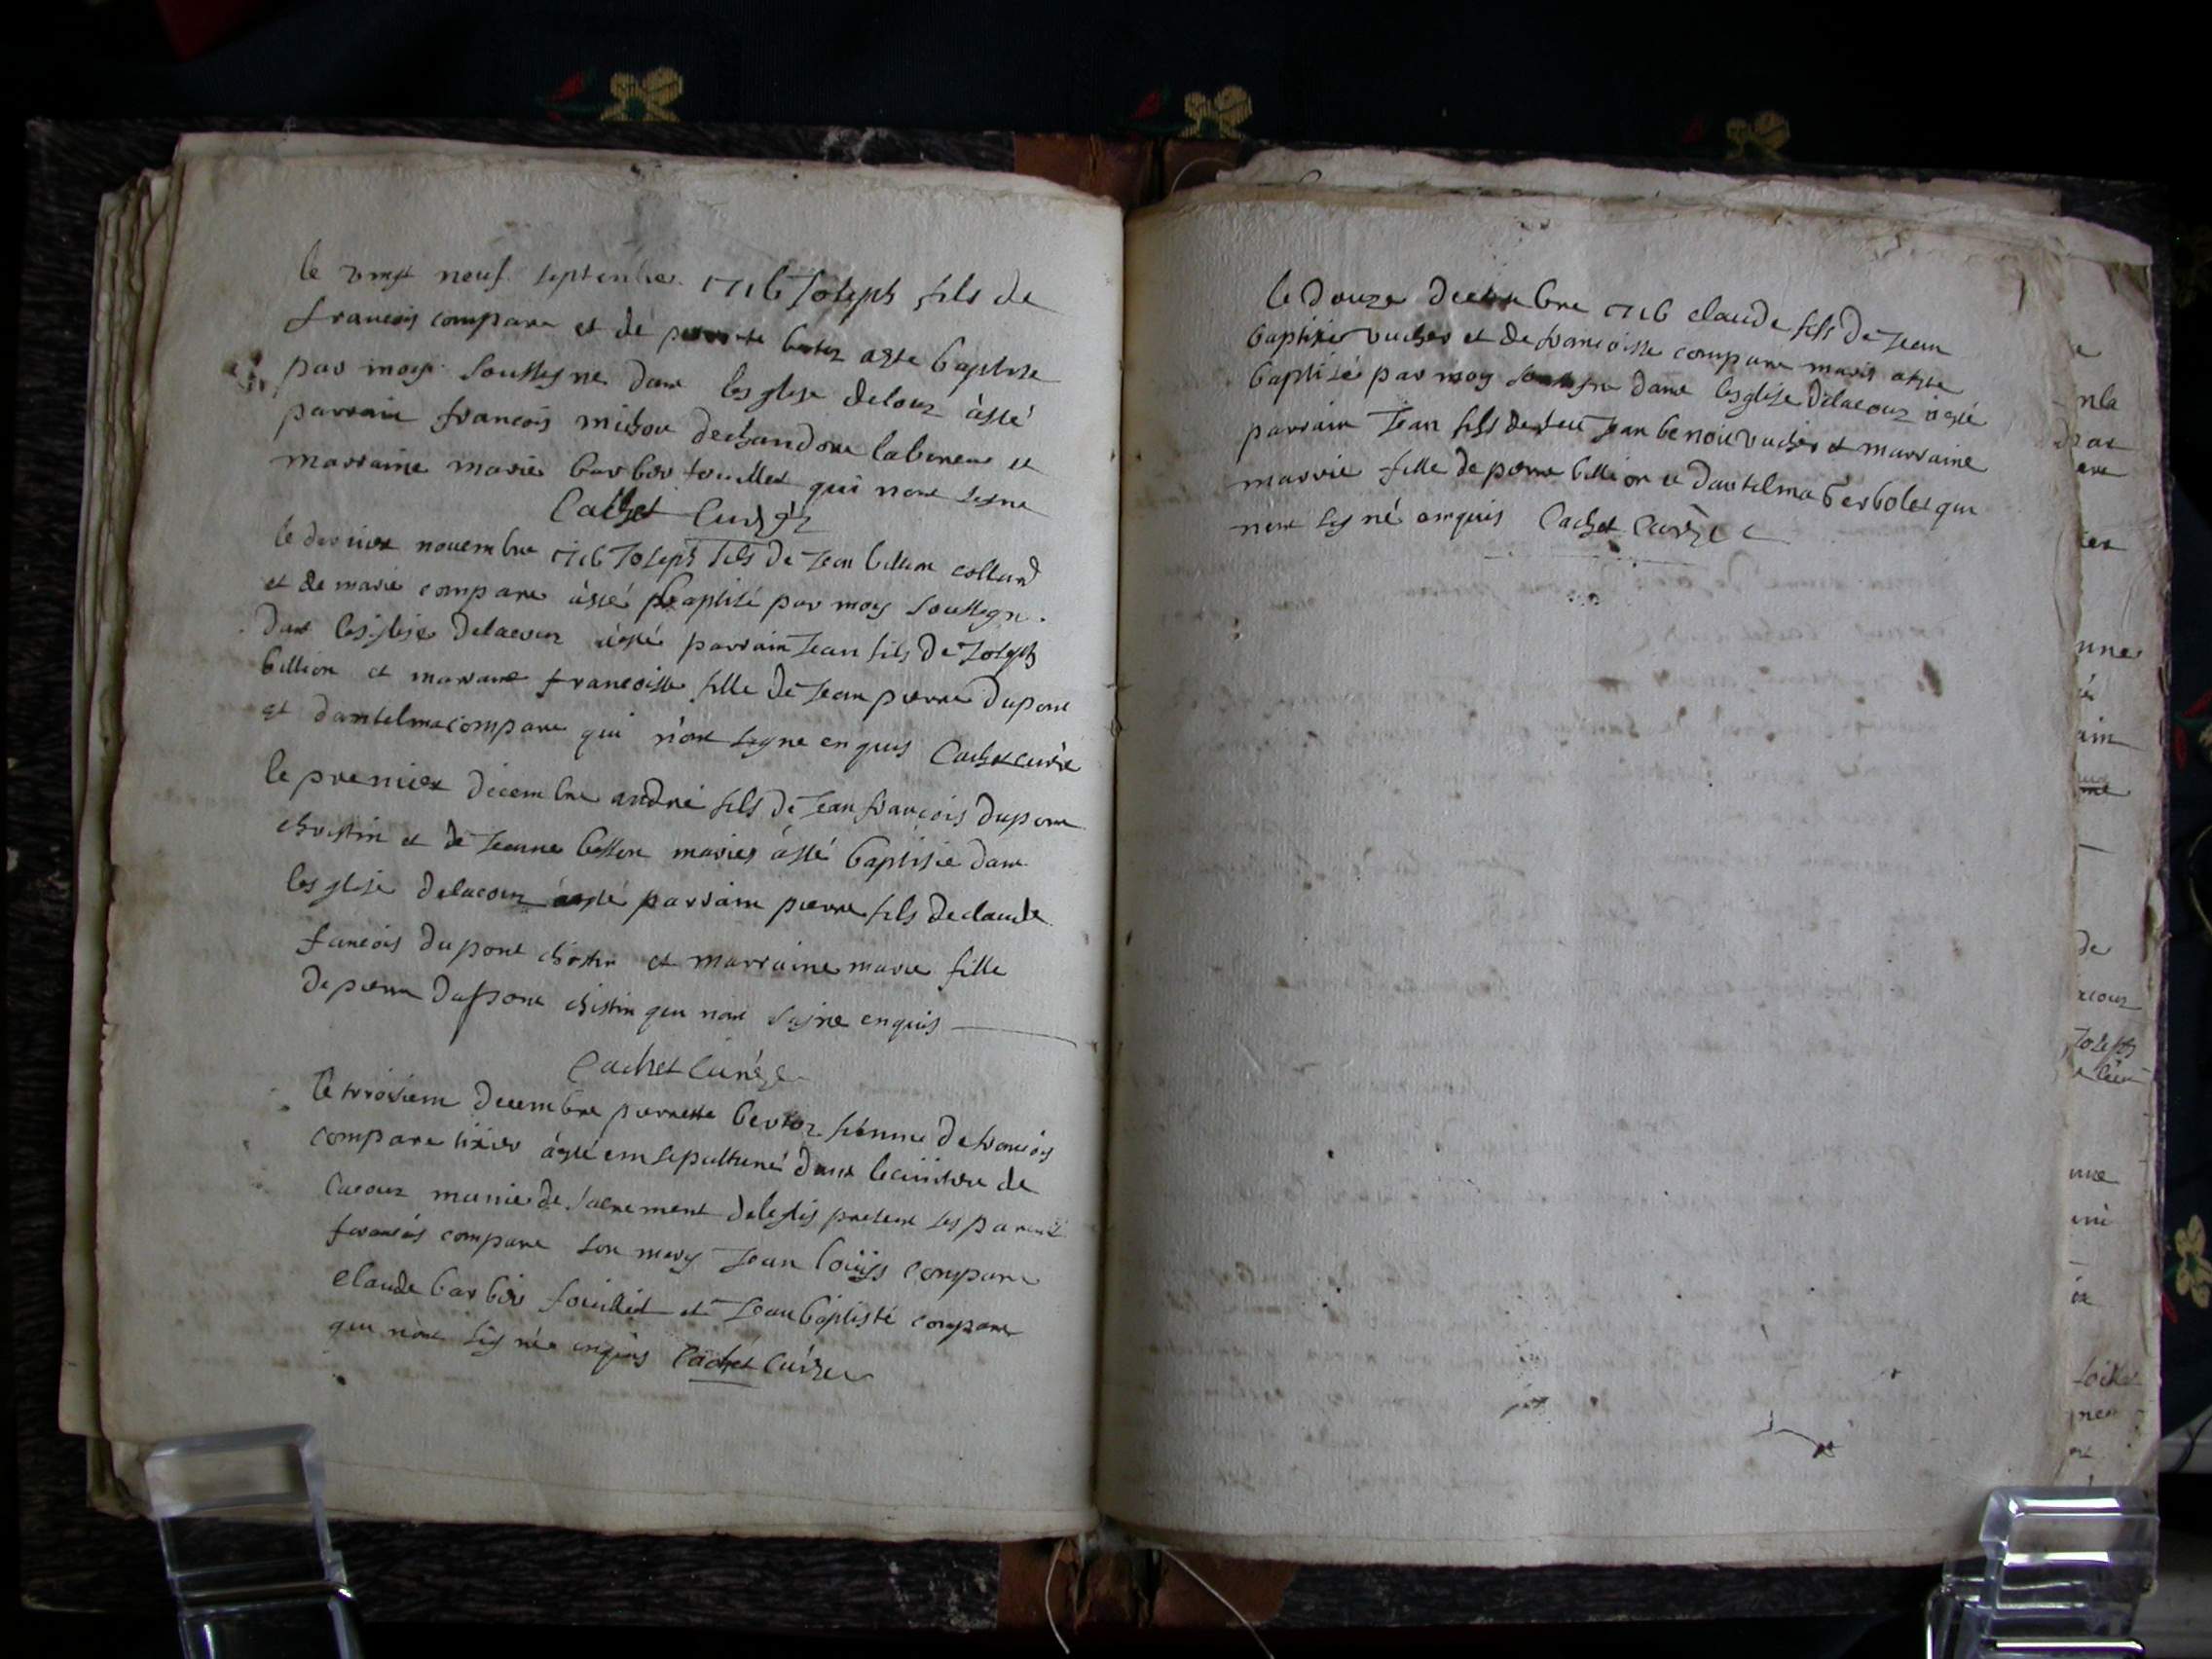 le vingt neuf septembre 1716 Joseph fils de
francois compare et de bertoz aste baptise
par moy soussigne dans lesglise delour àsté
parrain francois michon dechandore laboreur et
marraine marie barbier fouillet qui nont signe
Cachet Curé
le dernier nouembre 1716 Joseph fils de Jean billion colland
et de marie compare àsté baptisé par moy soussigne
dans lesglise delacour àsté parrain Jean fils de Joseph
billion et marraine francoisse fille de Jean pierre dupont
et dantelma compare qui nont signe enquis Cachet curé
le premier decembre andré fils de Jean francois dupont
christin et de Jeanne besson mariés àsté baptisée dans
lesglise delacour àsté parrain pierre fils de claude
fancois du pont christin et marraine marie fille
de pierre dupont christin qui nont signe enquis
Cachet Curé
le troisiem decembre pierrette bertoz femme de francois
compare tixier àsté ensepulturé dans le cimitiere de
lacour munie de sacrement deleglis present ses parents
francois compare son mary Jean louijs compare
claude barbier fouillet et Jean baptisté compare
qui nont signé enquis Cachet Curé
le douze decembre 1716 claude fils de Jean
baptiste vucher et de francoisse compare mariés aste
baptisé par moy soussigne dans lesglise delacour àsté
parrain Jean fils de feu Jean benoit vucher et marraine
marrie fille de pierre billion et dantelma berbolet qui
nont signé enquis Cachet Curé
nla
par
une
ain
de
Joseph
une